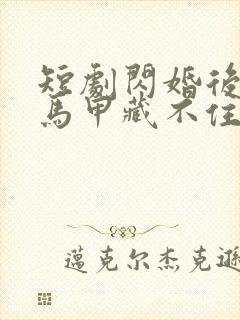 短劇閃婚後
馬甲藏不住
邁克尔杰克遜